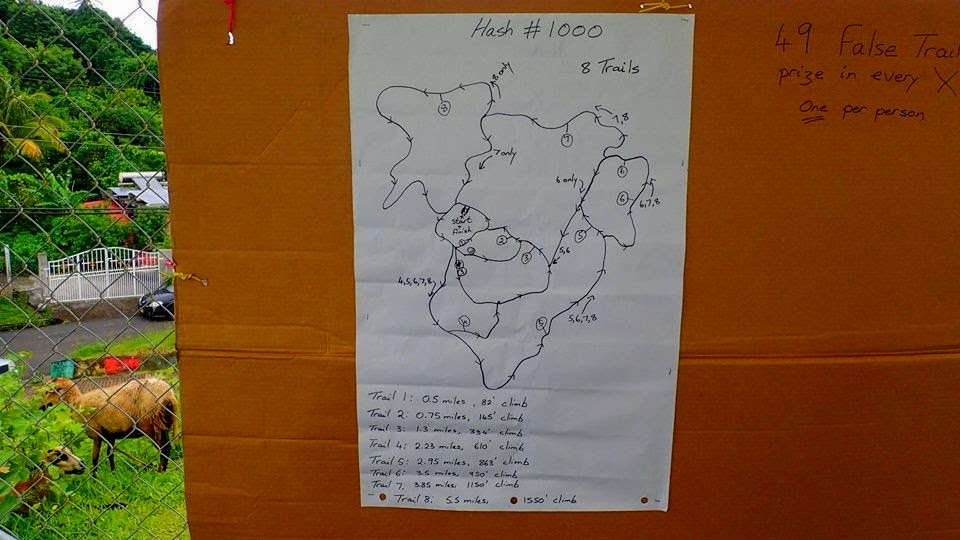 Hash # 1000
8 Trails
8 only
8
7
7,8
7 only
6 only
6
6
6,7,8
Start
Finish
1
2
2
3
5
5,6
3
4,5,6,7,8
4
5
5,6,7,8
Trail 1: 0.5 miles, 82' climb
Trail 2: 0.75 miles, 145' climb
Trail 3: 1.3 miles, 334' climb
Trail 4: 2.23 miles, 610' climb
Trail 5: 2.95 miles, 863' climb
Trail 6: 3.5 miles, 950' climb
Trail 7: 3.85 miles, 1150' climb
Trail 8: 5.5 miles, 1550' climb
49 False Trai
prize in every X
One per person